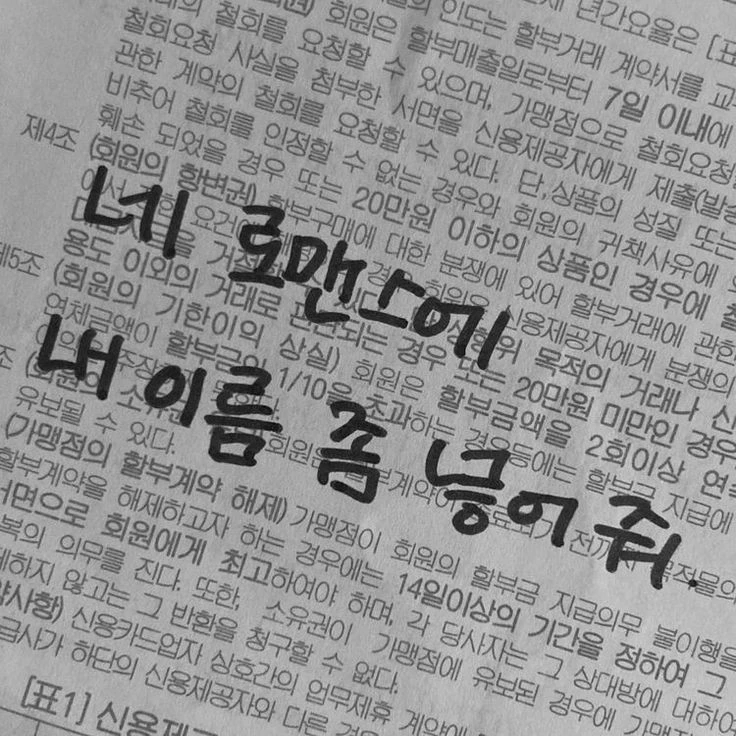 년간요율은 [표
철회를 요청할 수
인도는 할부거래 계약서를 교
철회요청 사실을 첨부한 서면을
할부매출일로부터 7일 이내에
관한 계약의 철회를 요청할 수 있으며, 가맹점으로 철회요청
비추어 철회를 인정할 수 없는 경우와 신용제공자에게 제출(발송
훼손 되었을 경우 또는 20만원 이하의 상품인 경우에
있다. 단, 상품의 성질 또는
회원의 귀책사유에
제4조 (회원의 항변권)
할부구매에 대한 분쟁에 있어 할부거래에 관한
신용제공자에게 분쟁의
용도 이외의 거래로
목적의 거래나
제5조 (회원의 기한이익의 상실) 회원은 할부금액을 2회이상 연속
또는 20만원 미만인 경우
연체금액이 할부금의 1/10을 초과하는 경우
지급에
유보될 수 있다.
(가맹점의 할부계약 해제) 가맹점이 회원의 할부금 지급의무 불이행을
할부계약을 해제하고자 하는 경우에는 14일이상의 기간을 정하여 그
서면으로 회원에게 최고하여야 하며, 각 당사자는 그 상대방에 대하여
복의 의무를 진다. 또한, 소유권이 가맹점에 유보된 경우에 가맹점
하지 않고는 그 반환을 청구할 수 없다.
신용카드업자 상호간의 업무제휴 계약에
급사가 하단의 신용제공자와 다른
[표1] 신용제공
네 로맨스에
내 이름 좀 넣어 줘.